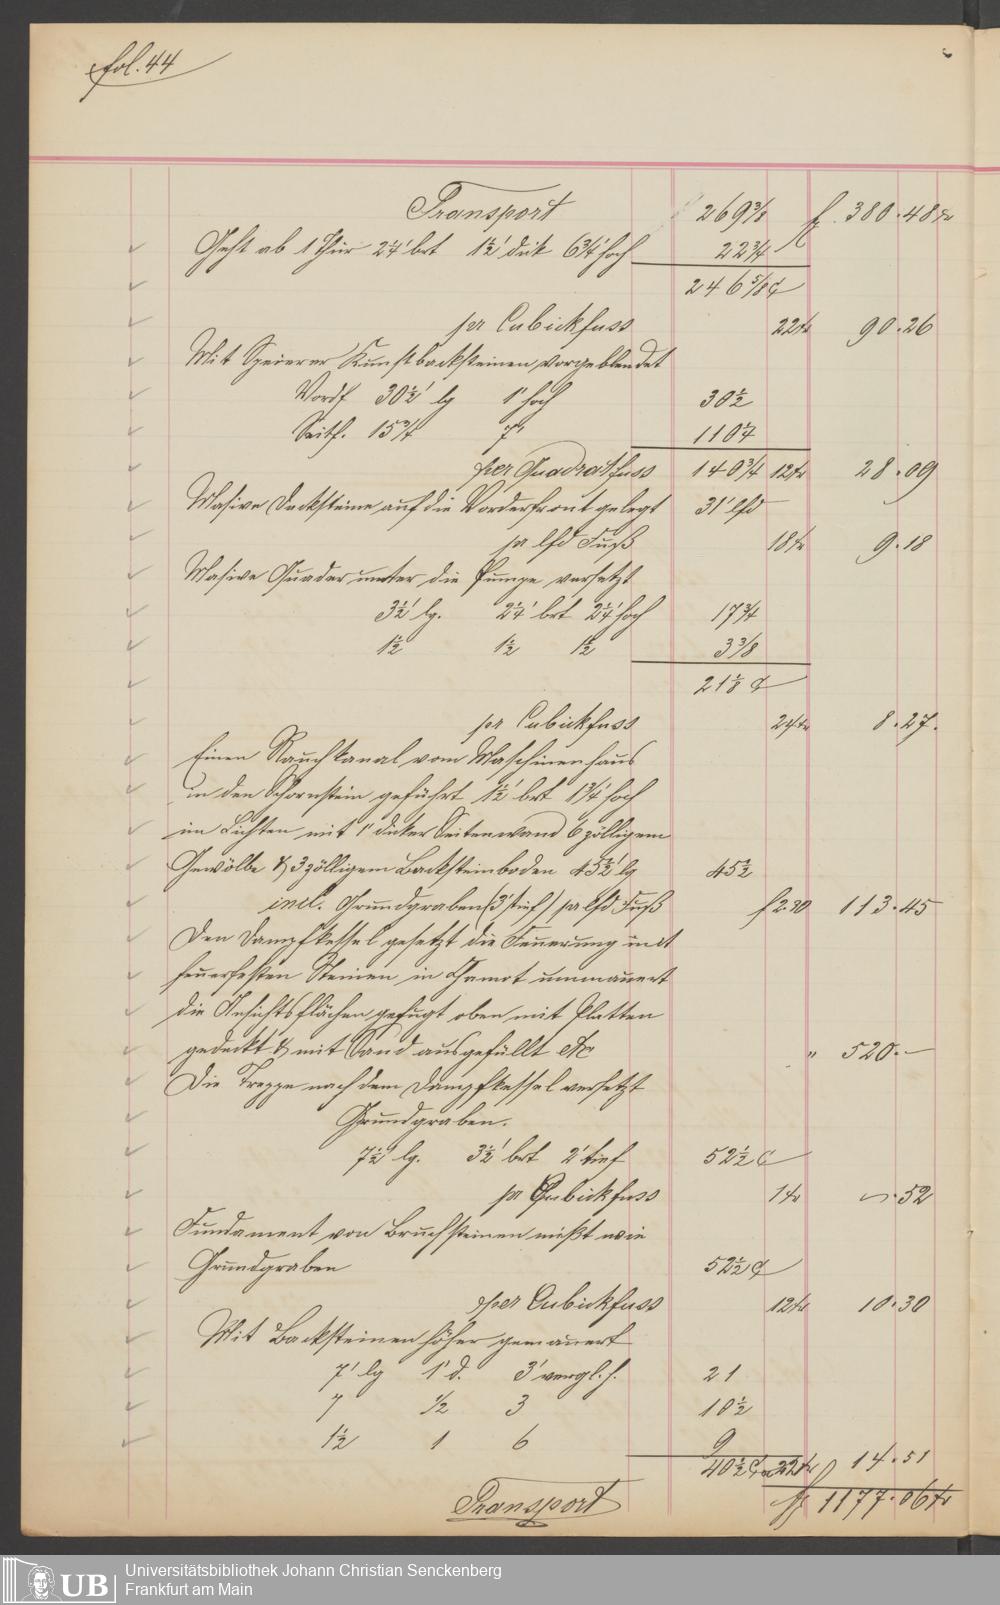 fol. 44
Transport 269 3/8 f 380.48 kr
Geht ab 1 Thür 2 1/4' brt 1 1/2' dick 6 3/4' hoch 22 3/4
246 5/8 c'
per Cubickfuss 22 kr 90.26
Mit Speierer Kunstbacksteinen vorgeblendet
Vordf 30 1/2' lg 1' hoch 30 1/2
Seitf. 15 3/4 7' 110 1/4
per Quadratfuss 140 3/4 12 kr 28.09
Masive Decksteine auf die Vorderfront gelegt 31' lfd
pr lfd Fuß 18 kr 9.18
Masive Quader unter die Pumpe versetzt
3 1/2' lg. 2 1/4' brt 2 1/4' hoch 17 3/4
1 1/2 1 1/2 1 1/2 3 3/8
21 1/8 c'
pr Cubickfuss 24 kr 8.27.
Einen Rauchkanal vom Maschinenhaus
in den Schornstein geführt 1 1/2' brt 1 3/4' hoch
im Lichten mit 1' dicker Seitenwand 6 zölligem
Gewölbe & 3 zölligem Backsteinboden 45 1/2' lg 45 1/2
incl. Grundgraben (3' tief) pr lfd Fuß f 2.30 113.45
Den Dampfkessel gesetzt die Feuerung mit
feuerfesten Steinen in Chamot ummauert
die Ansichtsflächen gefugt oben mit Platten
gedeckt & mit Sand ausgefüllt etc " 520.—
Die Treppe nach dem Dampfkessel versetzt
Grundgraben.
7 1/2' lg. 3 1/2' brt 2' tief 52 1/2 c'
pr Cubickfuss 1 kr —.52
Fundament von Bruchsteinen mißt wie
Grundgraben 52 1/2 c'
per Cubickfuss 12 kr 10.30
Mit Backsteinen höher gemauert
7' lg 1' d. 3' vergl. h. 21
7 1/2 3 10 1/2
1 1/2 1 6 9
40 1/2 c' a 22 kr 14.51
Transport f 1177.06 kr
UB
Universitätsbibliothek Johann Christian Senckenberg
Frankfurt am Main